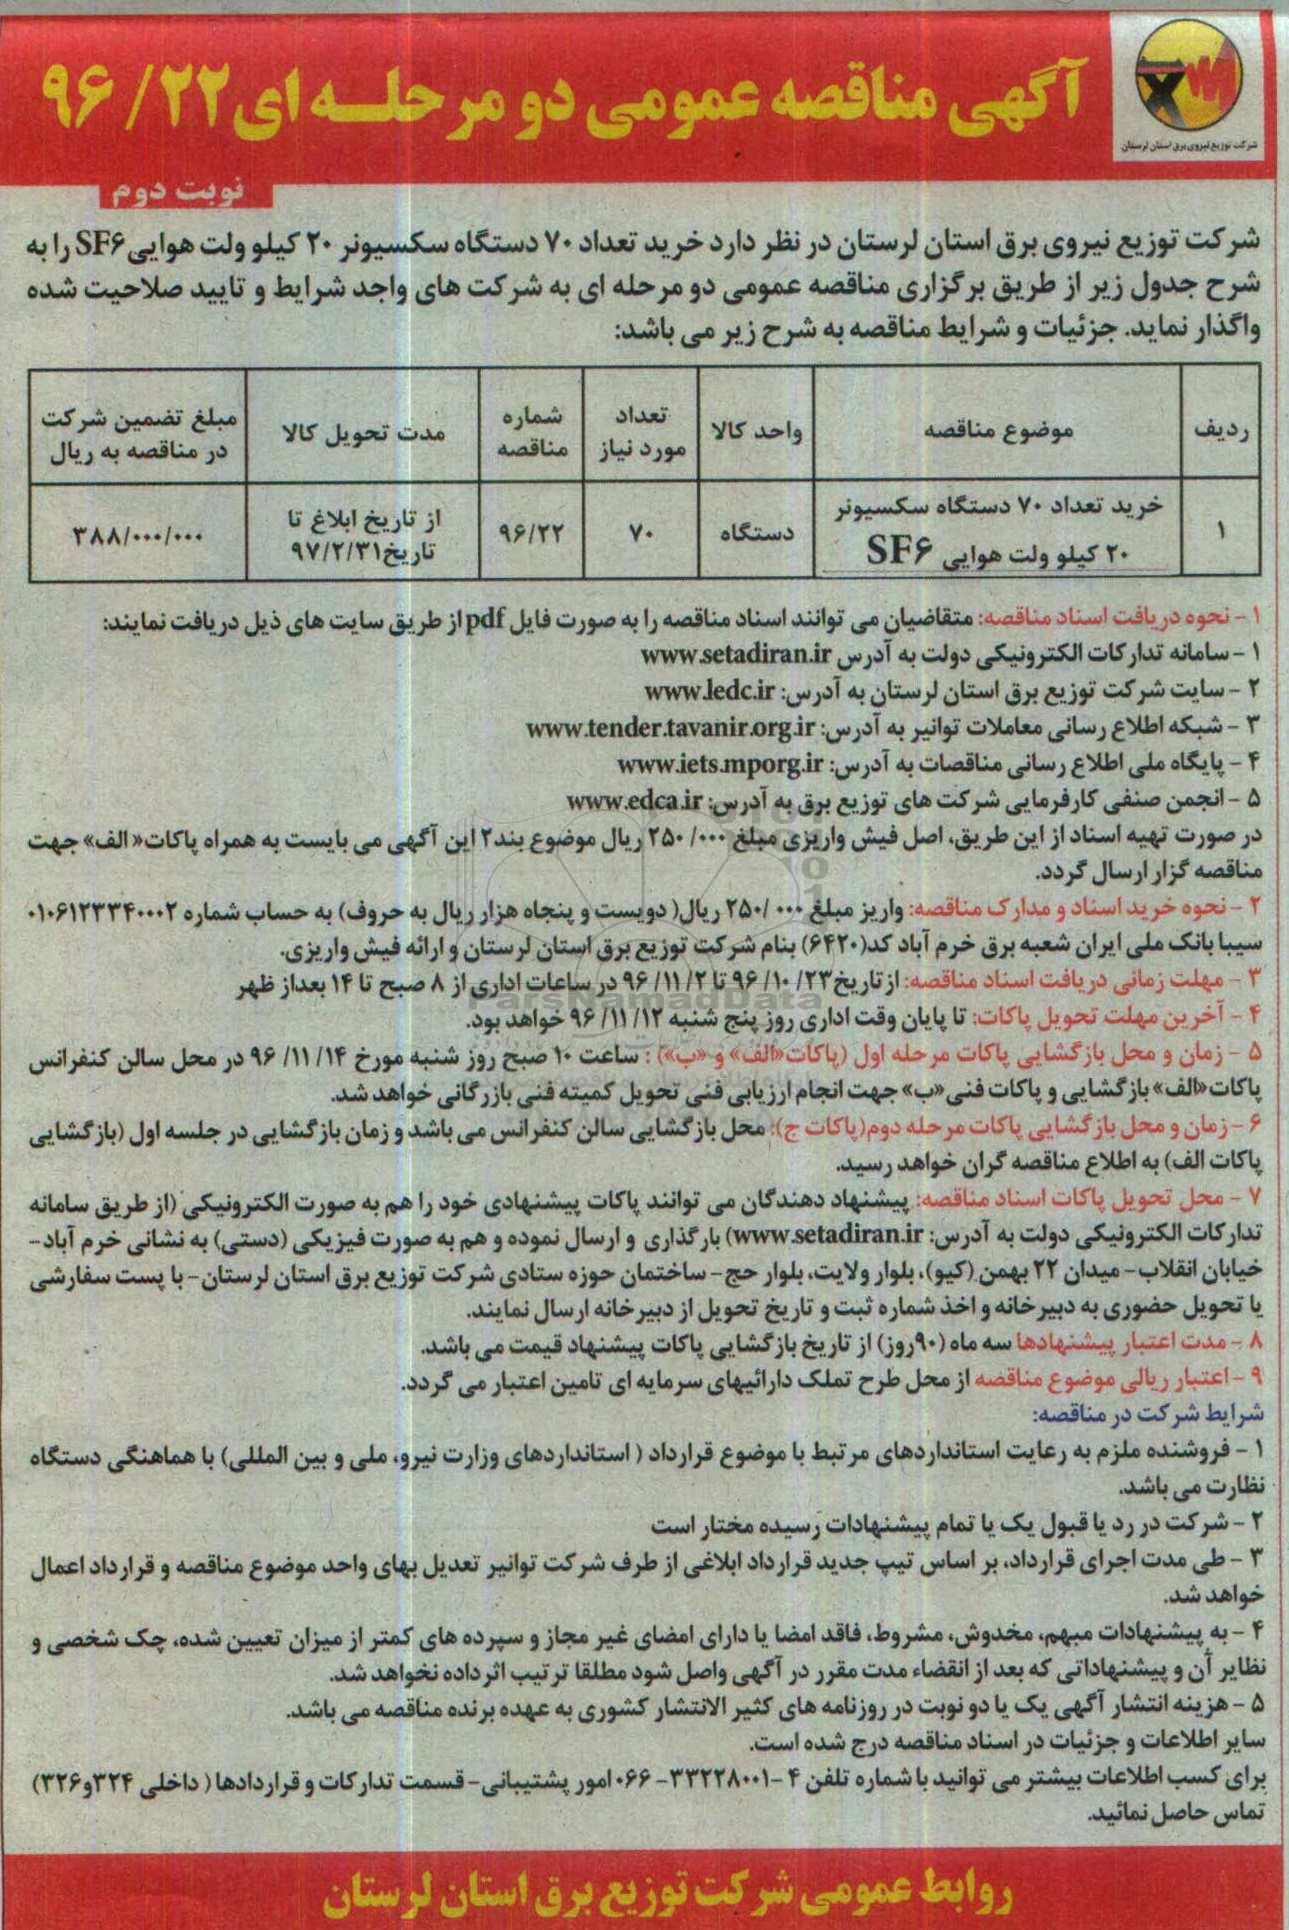 آگهی مناقصه عمومی دو مرحله ای ۹۶/۲۲
شرکت توزیع نیروی برق استان لرستان
نوبت دوم
شرکت توزیع نیروی برق استان لرستان در نظر دارد خرید تعداد ۷۰ دستگاه سکسیونر ۲۰ کیلو ولت هوایی SF۶ را به
شرح جدول زیر از طریق برگزاری مناقصه عمومی دو مرحله ای به شرکت های واجد شرایط و تایید صلاحیت شده
واگذار نماید. جزئیات و شرایط مناقصه به شرح زیر می باشد:
ردیف | موضوع مناقصه | واحد کالا | تعداد مورد نیاز | شماره مناقصه | مدت تحویل کالا | مبلغ تضمین شرکت در مناقصه به ریال
۱ | خرید تعداد ۷۰ دستگاه سکسیونر ۲۰ کیلو ولت هوایی SF۶ | دستگاه | ۷۰ | ۹۶/۲۲ | از تاریخ ابلاغ تا تاریخ۹۷/۲/۳۱ | ۳۸۸/۰۰۰/۰۰۰
۱ - نحوه دریافت اسناد مناقصه: متقاضیان می توانند اسناد مناقصه را به صورت فایل pdf از طریق سایت های ذیل دریافت نمایند:
۱ - سامانه تدارکات الکترونیکی دولت به آدرس www.setadiran.ir
۲ - سایت شرکت توزیع برق استان لرستان به آدرس: www.ledc.ir
۳ - شبکه اطلاع رسانی معاملات توانیر به آدرس: www.tender.tavanir.org.ir
۴ - پایگاه ملی اطلاع رسانی مناقصات به آدرس: www.iets.mporg.ir
۵ - انجمن صنفی کارفرمایی شرکت های توزیع برق به آدرس: www.edca.ir
در صورت تهیه اسناد از این طریق، اصل فیش واریزی مبلغ ۲۵۰/۰۰۰ ریال موضوع بند۲ این آگهی می بایست به همراه پاکات« الف» جهت
مناقصه گزار ارسال گردد.
۲ - نحوه خرید اسناد و مدارک مناقصه: واریز مبلغ ۲۵۰/۰۰۰ ریال( دویست و پنجاه هزار ریال به حروف) به حساب شماره ۰۱۰۶۱۲۳۳۴۰۰۰۲
سیبا بانک ملی ایران شعبه برق خرم آباد کد(۶۴۲۰) بنام شرکت توزیع برق استان لرستان و ارائه فیش واریزی.
۳ - مهلت زمانی دریافت اسناد مناقصه: از تاریخ۹۶/۱۰/۲۳ تا ۹۶/۱۱/۲ در ساعات اداری از ۸ صبح تا ۱۴ بعداز ظهر
۴ - آخرین مهلت تحویل پاکات: تا پایان وقت اداری روز پنج شنبه ۹۶/۱۱/۱۲ خواهد بود.
۵ - زمان و محل بازگشایی پاکات مرحله اول (پاکات«الف» و «ب») : ساعت ۱۰ صبح روز شنبه مورخ ۹۶/۱۱/۱۴ در محل سالن کنفرانس
پاکات«الف» بازگشایی و پاکات فنی«ب» جهت انجام ارزیابی فنی تحویل کمیته فنی بازرگانی خواهد شد.
۶ - زمان و محل بازگشایی پاکات مرحله دوم(پاکات ج): محل بازگشایی سالن کنفرانس می باشد و زمان بازگشایی در جلسه اول (بازگشایی
پاکات الف) به اطلاع مناقصه گران خواهد رسید.
۷ - محل تحویل پاکات اسناد مناقصه: پیشنهاد دهندگان می توانند پاکات پیشنهادی خود را هم به صورت الکترونیکی (از طریق سامانه
تدارکات الکترونیکی دولت به آدرس: www.setadiran.ir) بارگذاری و ارسال نموده و هم به صورت فیزیکی (دستی) به نشانی خرم آباد-
خیابان انقلاب- میدان ۲۲ بهمن (کیو)، بلوار ولایت، بلوار حج- ساختمان حوزه ستادی شرکت توزیع برق استان لرستان- با پست سفارشی
یا تحویل حضوری به دبیرخانه و اخذ شماره ثبت و تاریخ تحویل از دبیرخانه ارسال نمایند.
۸ - مدت اعتبار پیشنهادها سه ماه (۹۰روز) از تاریخ بازگشایی پاکات پیشنهاد قیمت می باشد.
۹ - اعتبار ریالی موضوع مناقصه از محل طرح تملک دارائیهای سرمایه ای تامین اعتبار می گردد.
شرایط شرکت در مناقصه:
۱ - فروشنده ملزم به رعایت استانداردهای مرتبط با موضوع قرارداد ( استانداردهای وزارت نیرو، ملی و بین المللی) با هماهنگی دستگاه
نظارت می باشد.
۲ - شرکت در رد یا قبول یک یا تمام پیشنهادات رسیده مختار است
۳ - طی مدت اجرای قرارداد، بر اساس تیپ جدید قرارداد ابلاغی از طرف شرکت توانیر تعدیل بهای واحد موضوع مناقصه و قرارداد اعمال
خواهد شد.
۴ - به پیشنهادات مبهم، مخدوش، مشروط، فاقد امضا یا دارای امضای غیر مجاز و سپرده های کمتر از میزان تعیین شده، چک شخصی و
نظایر آن و پیشنهاداتی که بعد از انقضاء مدت مقرر در آگهی واصل شود مطلقا ترتیب اثر داده نخواهد شد.
۵ - هزینه انتشار آگهی یک یا دو نوبت در روزنامه های کثیر الانتشار کشوری به عهده برنده مناقصه می باشد.
سایر اطلاعات و جزئیات در اسناد مناقصه درج شده است.
برای کسب اطلاعات بیشتر می توانید با شماره تلفن ۴ -۳۳۲۲۸۰۰۱- ۰۶۶ امور پشتیبانی- قسمت تدارکات و قراردادها ( داخلی ۳۲۴و۳۲۶)
تماس حاصل نمائید.
روابط عمومی شرکت توزیع برق استان لرستان
ParsNamadData